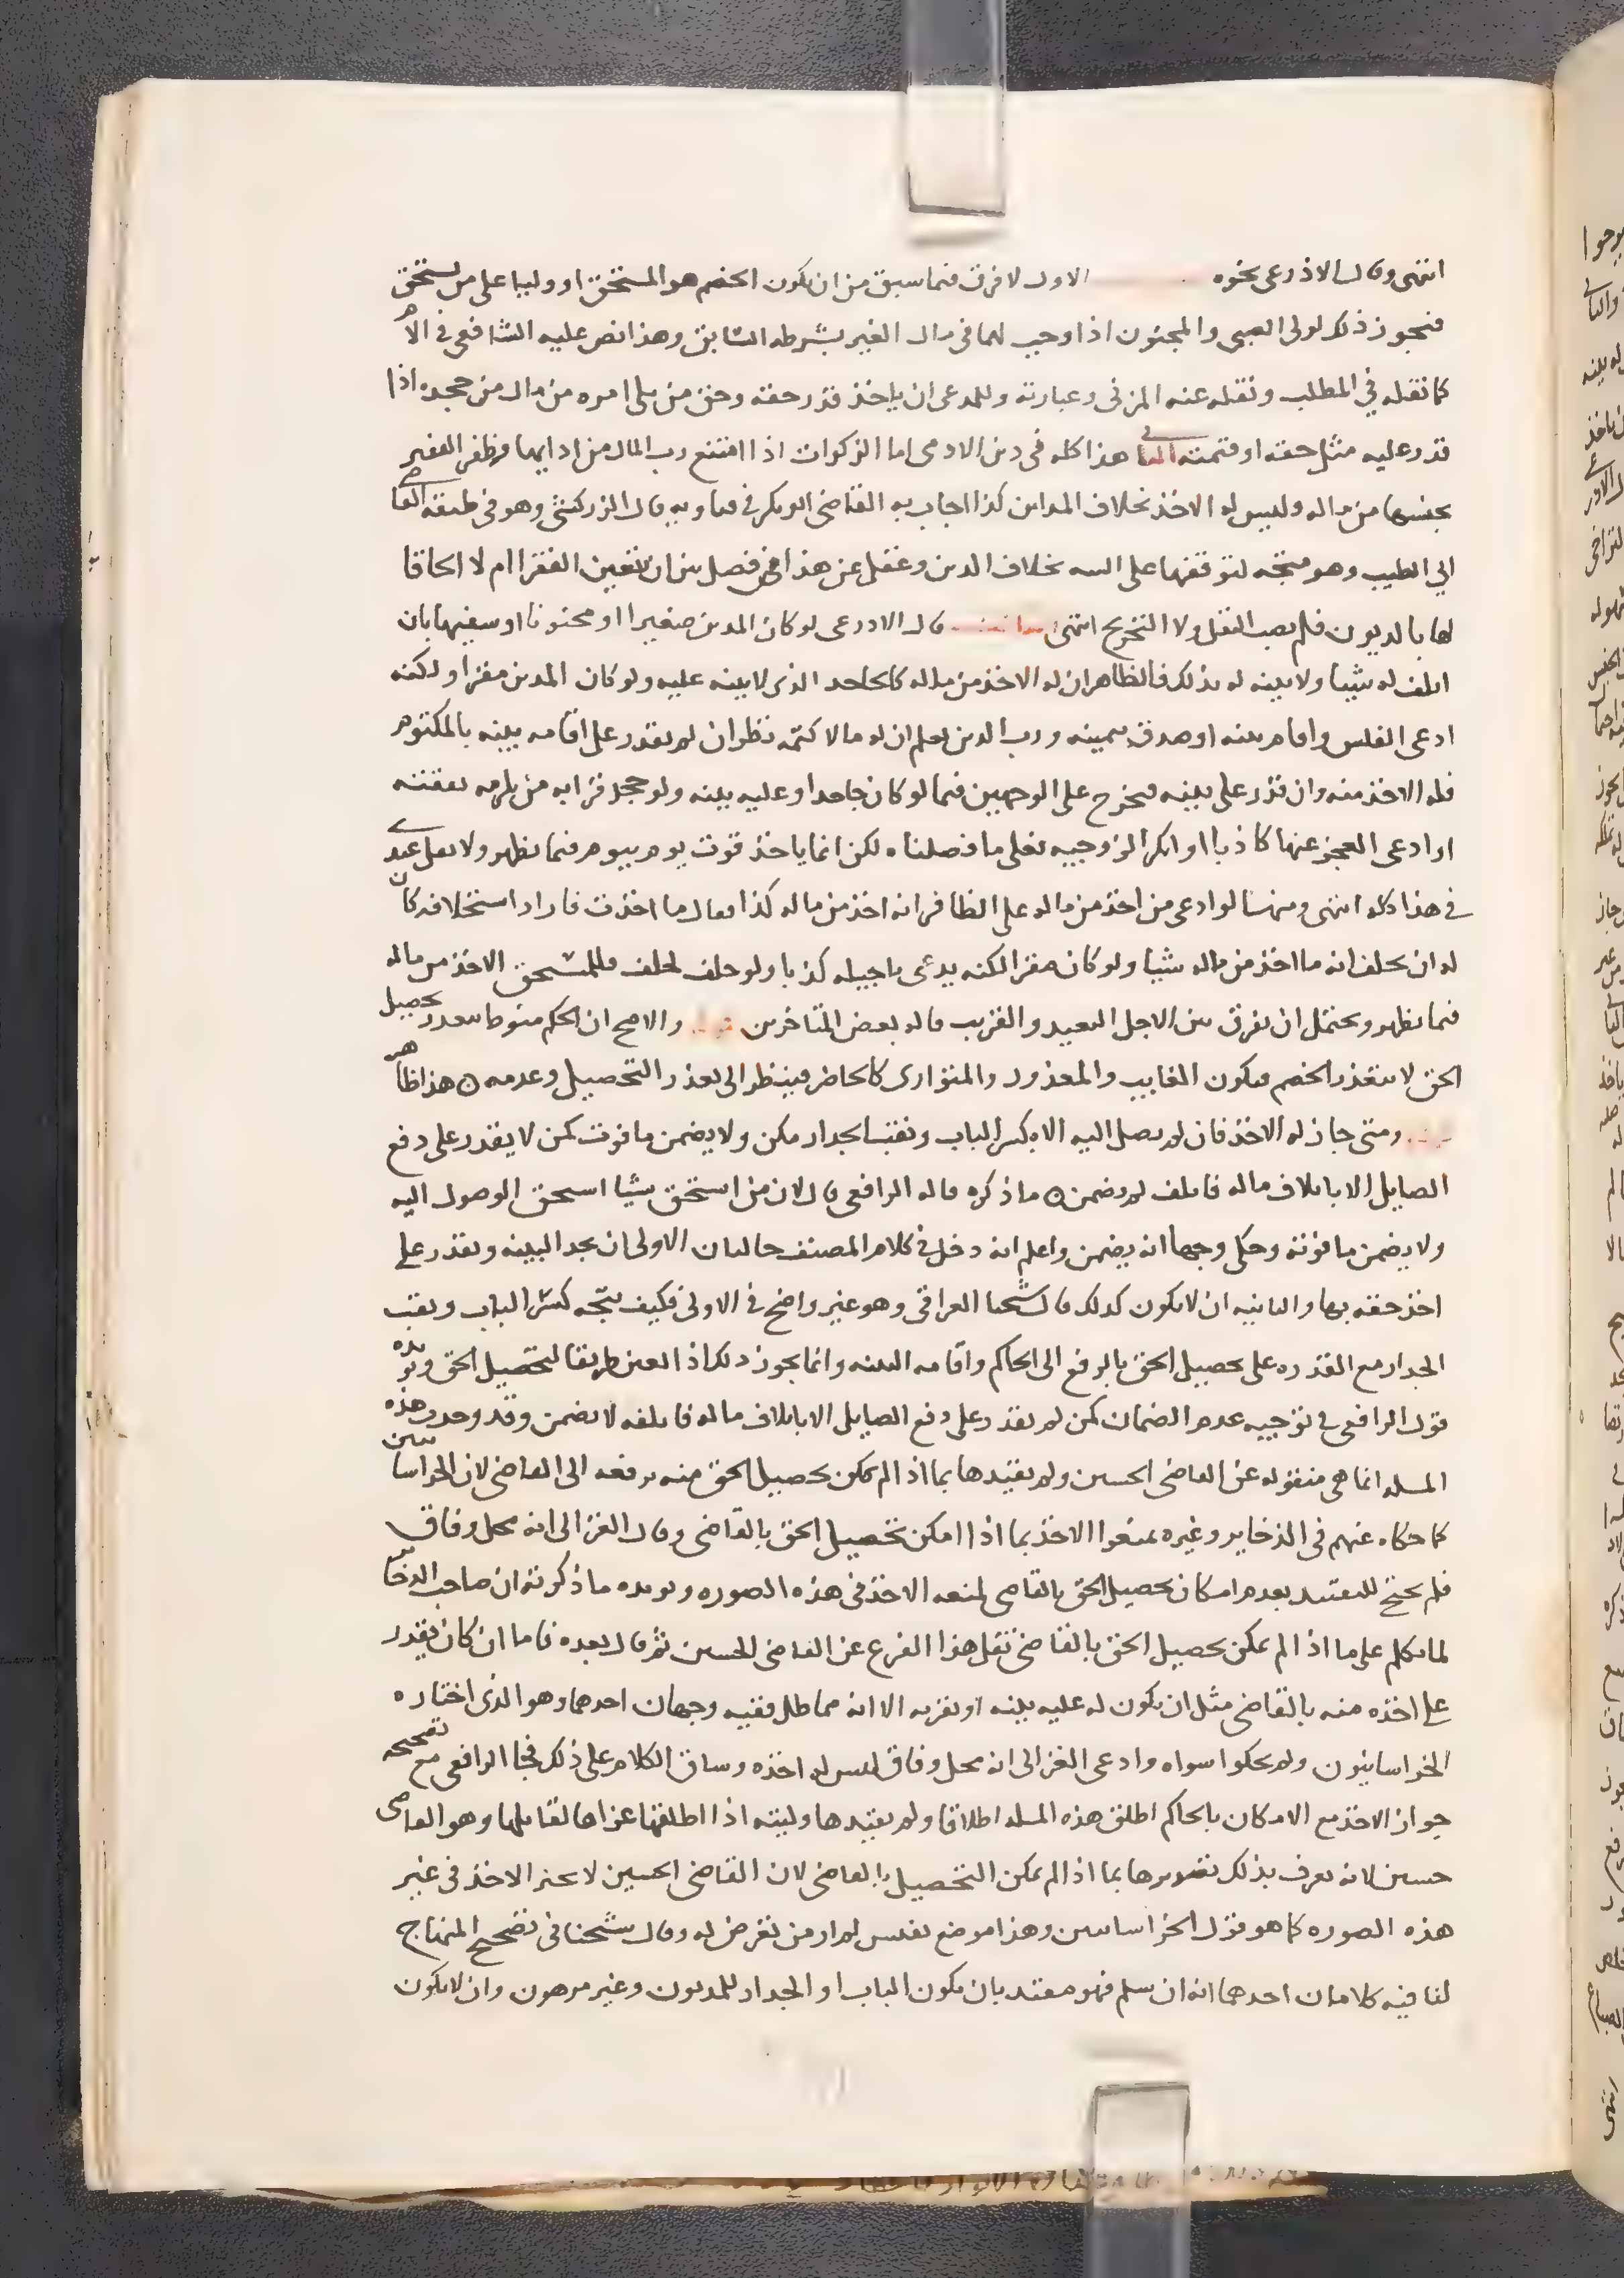 انتهى وقال الاذرعى نحوه الاول لا فرق فيما سبق من ان يكون الخصم هو المستحق او وليا على من يستحق
فيجوز ذلك لولى الصبى والمجنون اذا وجب لهما فى مال الغير بشرطه السابق وهذا نص عليه الشافعى فى الام
كما نقله في المطلب ونقله عنه المزنى وعبارته وللمدعى ان ياخذ قدر حقه وحق من يلى امره من مال من جحده اذا
قدر عليه مثل حقه او قيمته الثانى هذا كله فى دين الادمى اما الزكوات اذا امتنع رب المال من ادايها وظفر الفقير
بجنسها من ماله وليس له الاخذ بخلاف المداين كذا اجاب به القاضى ابو بكر فى فتاويه قال الزركشى وهو فى طبقة القاضى
ابي الطيب وهو متجه لتوقفها على النيه بخلاف الدين وغفل عن هذا من فصل بين ان تتعين الفقرا ام لا الحاقا
لها بالديون فلم يصب النقل ولا التخريج انتهى قال الاذرعى لو كان المدين صغيرا او مجنونا او سفيها بان
اتلف له شيا ولا بينه له بذلك فالظاهر ان له الاخذ من ماله كالجاحد الذى لا بينه عليه ولو كان المدين مقرا ولكنه
ادعى الفلس واقام بينه او صدق بيمينه ورب الدين يعلم ان له مالا كتمه نظر ان لم يقدر على اقامه بينه بالمكتوم
فله الاخذ منه وان قدر على بينه فيخرج على الوجهين فيما لو كان جاحدا وعليه بينه ولو جحد قرابه من يلزمه نفقته
او ادعى العجز عنها كاذبا او انكر الزوجيه فعلى ما فصلناه لكن انما ياخذ قوت يوم بيوم فيما يظهر ولا نقل عندى
في هذا كله انتهى ومنها لو ادعى من اخذ من ماله على الظافر انه اخذ من ماله كذا فقال ما اخذت فاراد استحلافه كان
له ان يحلف انه ما اخذ من ماله شيا ولو كان مقرا لكنه يدعى تاجيله كذبا ولو حلف لحلف فللمستحق الاخذ من ماله
فيما يظهر ويحتمل ان يفرق بين الاجل البعيد والقريب قاله بعض المتاخرين والاصح ان الحكم منوط بتعذر تحصيل
الحق لا بتعذر الخصم فيكون الغايب والمعذور والمتوارى كالحاضر فينظر الى تعذر التحصيل وعدمه ه هذا ظاهر
ومتى جاز له الاخذ فان لم يصل اليه الا بكسر الباب ونقب الجدار مكن ولا يضمن ما فوت كمن لا يقدر على دفع
الصايل الا باتلاف ماله فاتلف لم يضمن ه ما ذكره قاله الرافعى قال لان من استحق شيا استحق الوصول اليه
ولا يضمن ما فوته وحكى وجها انه يضمن واعلم انه دخل في كلام المصنف حالتان الاولى ان يجد البينه ويقدر على
اخذ حقه بها والثانيه ان لا يكون كذلك قال شيخنا العراقى وهو غير واضح في الاولى فكيف يتجه كسر الباب ونقب
الجدار مع القدره على تحصيل الحق بالرفع الى الحاكم واقامه البينه وانما يجوز ذلك اذا تعين طريقا لتحصيل الحق ويويده
قول الرافعى في توجيه عدم الضمان كمن لم يقدر على دفع الصايل الا باتلاف ماله فاتلفه لا يضمن وقد وجدت هذه
المسله انما هى منقوله عن القاضى الحسين ولم يقيدها بما اذا لم يمكن تحصيل الحق منه برفعه الى القاضى لان الخراسانيين
كما حكاه عنهم فى الذخاير وغيره منعوا الاخذ بما اذا امكن تحصيل الحق بالقاضى وقال الغزالى انه محل وفاق
فلم يحتج للتقييد بعدم امكان تحصيل الحق بالقاضى لمنعه الاخذ فى هذه الصوره ويويده ما ذكرته ان صاحب الذخاير
لما تكلم على ما اذا لم يمكن تحصيل الحق بالقاضى نقل هذا الفرع عن القاضى الحسين ثم قال بعده فاما ان كان يقدر
على اخذه منه بالقاضى مثل ان يكون له عليه بينه او يقر به الا انه مماطل ففيه وجهان احدهما وهو الذى اختاره
الخراسانيون ولم يحكوا سواه وادعى الغزالى انه محل وفاق ليس له اخذه وساق الكلام على ذلك فجا الرافعى مع تصحيحه
جواز الاخذ مع الامكان بالحاكم اطلق هذه المسله اطلاقا ولم يقيدها وليته اذا اطلقها عزاها لقايلها وهو القاضى
حسين لانه يعرف بذلك تصويرها بما اذا لم يمكن التحصيل بالقاضى لان القاضى الحسين لا يجيز الاخذ فى غير
هذه الصوره كما هو قول الخراسانيين وهذا موضع نفيس لم ار من تعرض له وقال شيخنا فى تصحيح المنهاج
لنا فيه كلامان احدهما انه ان سلم فهو مقيد بان يكون الباب او الجدار للمديون وغير مرهون وان لا يكون